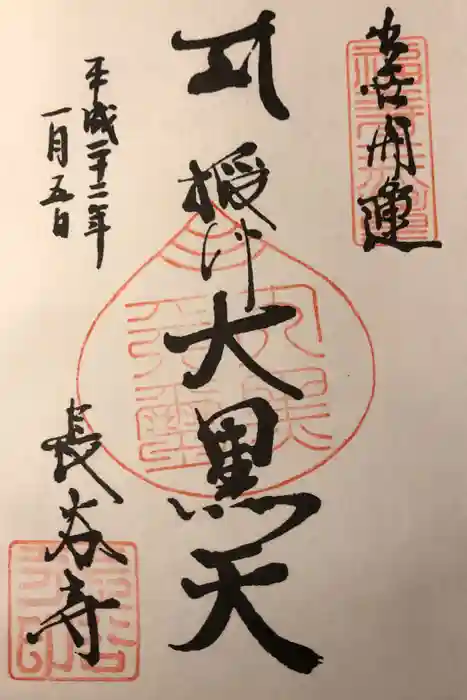 出世開運
授け大黒天
平成二十二年
一月五日
長谷寺